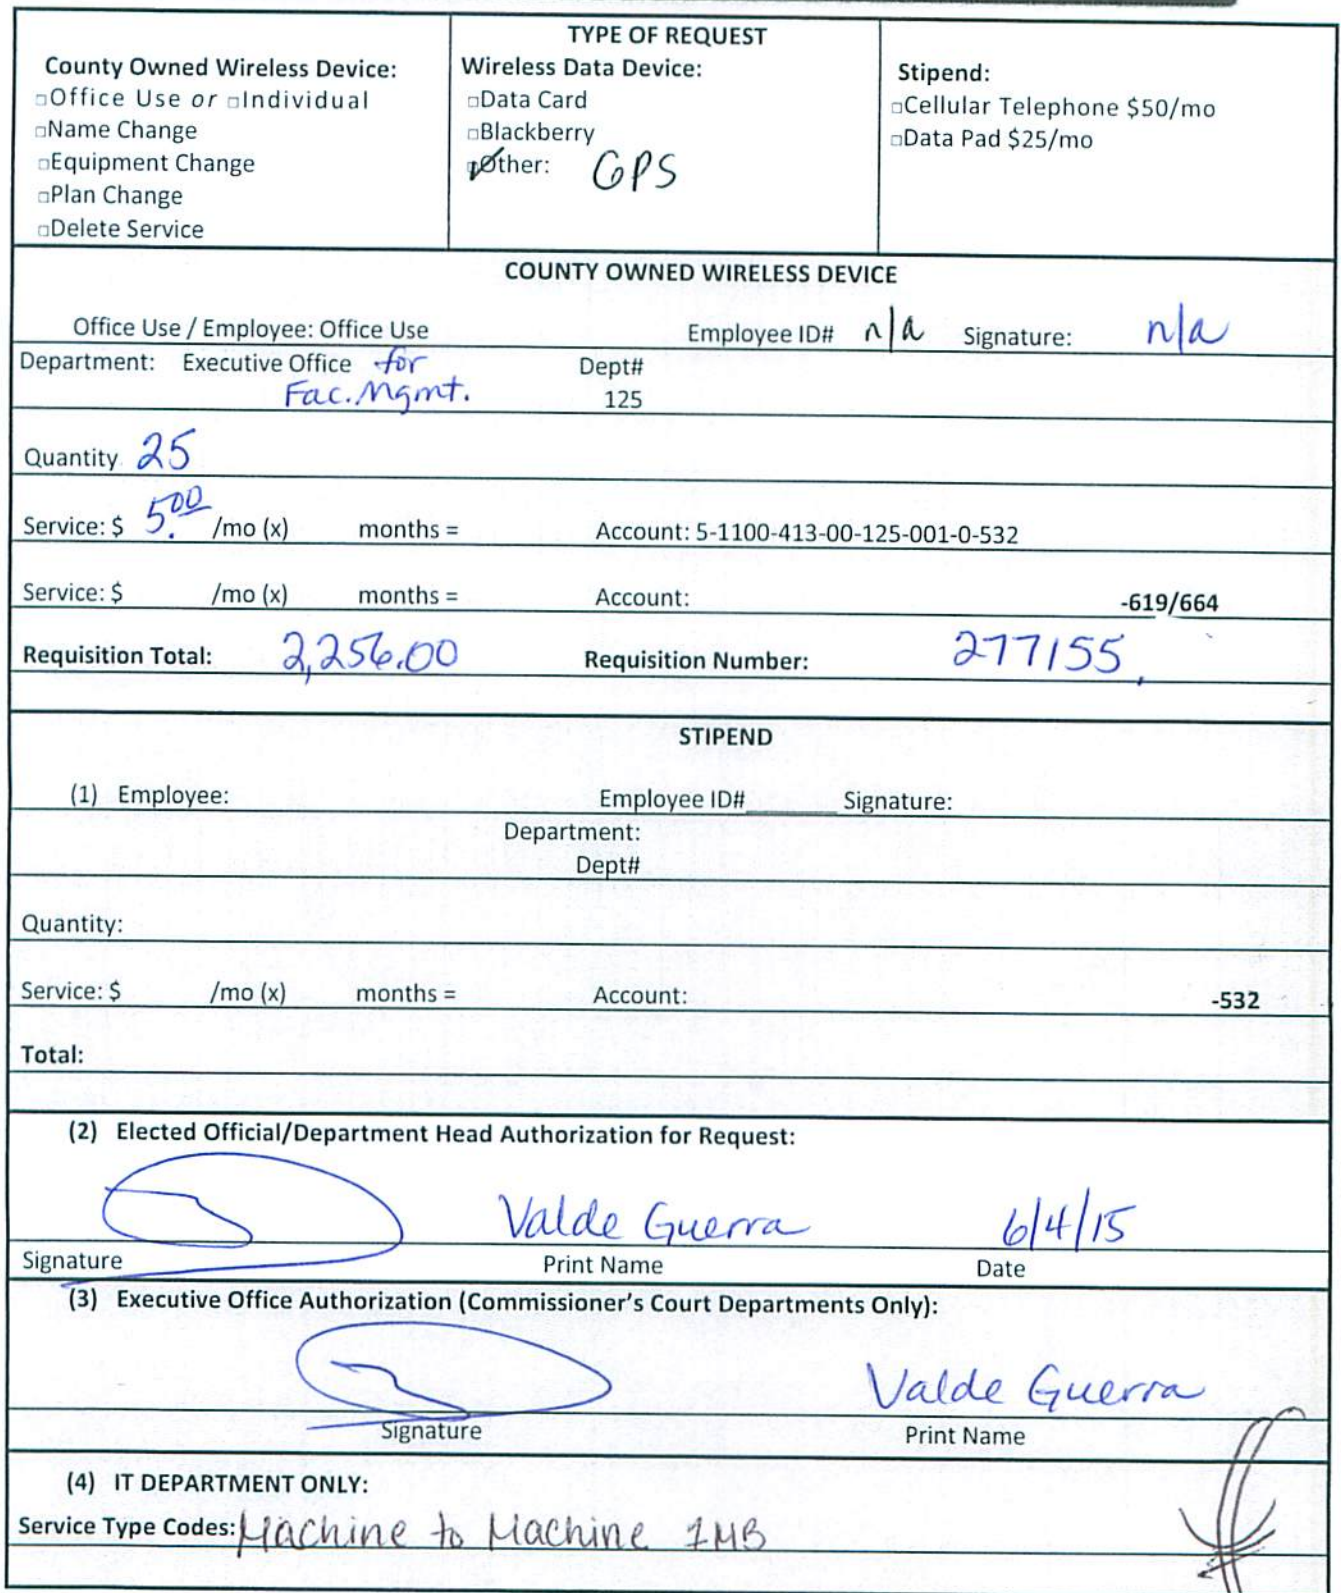 TYPE OF REQUEST
County Owned Wireless Device:
□Office Use or □Individual
□Name Change
□Equipment Change
□Plan Change
□Delete Service
Wireless Data Device:
□Data Card
□Blackberry
□Other: GPS
Stipend:
□Cellular Telephone $50/mo
□Data Pad $25/mo
COUNTY OWNED WIRELESS DEVICE
Office Use / Employee: Office Use Employee ID# n/a Signature: n/a
Department: Executive Office for Dept#
Fac. Mgmt. 125
Quantity 25
Service: $ 5.00 /mo (x) months = Account: 5-1100-413-00-125-001-0-532
Service: $ /mo (x) months = Account: -619/664
Requisition Total: 2,256.00 Requisition Number: 277155
STIPEND
(1) Employee: Employee ID# Signature:
Department:
Dept#
Quantity:
Service: $ /mo (x) months = Account: -532
Total:
(2) Elected Official/Department Head Authorization for Request:
Valde Guerra 6/4/15
Signature Print Name Date
(3) Executive Office Authorization (Commissioner's Court Departments Only):
Valde Guerra
Signature Print Name
(4) IT DEPARTMENT ONLY:
Service Type Codes: Machine to Machine 1MB